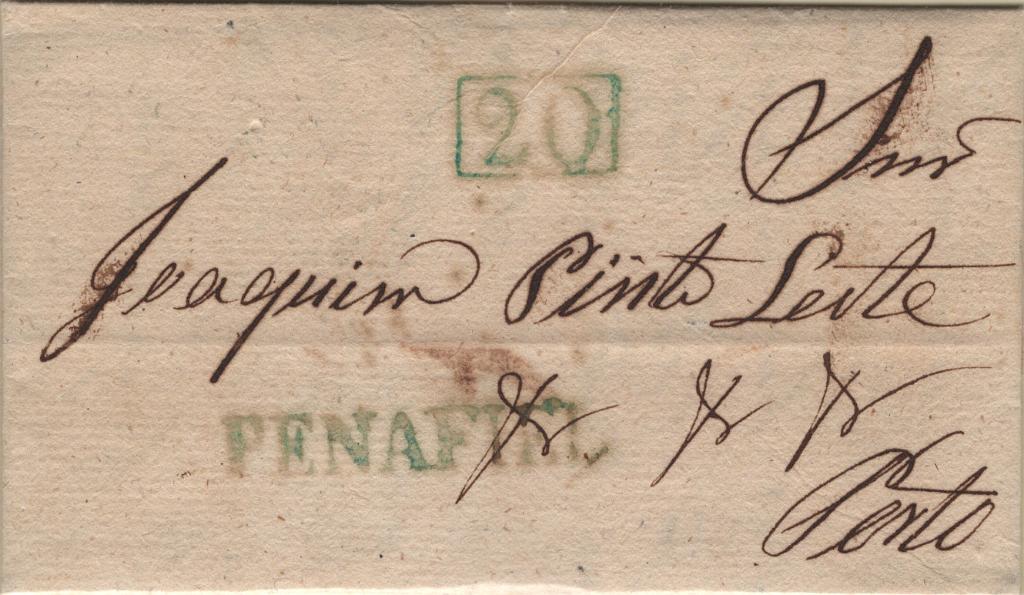 20
Snr
Joaquim Pinto Leite
PENAFIEL
&r &r &r
Porto